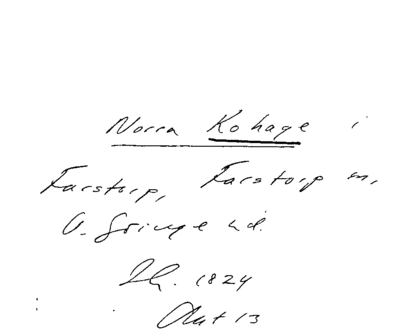 Norra Kohage i
Farstorp, Farstorp sn,
V. Göinge hd.
Lh. 1824
Akt 13